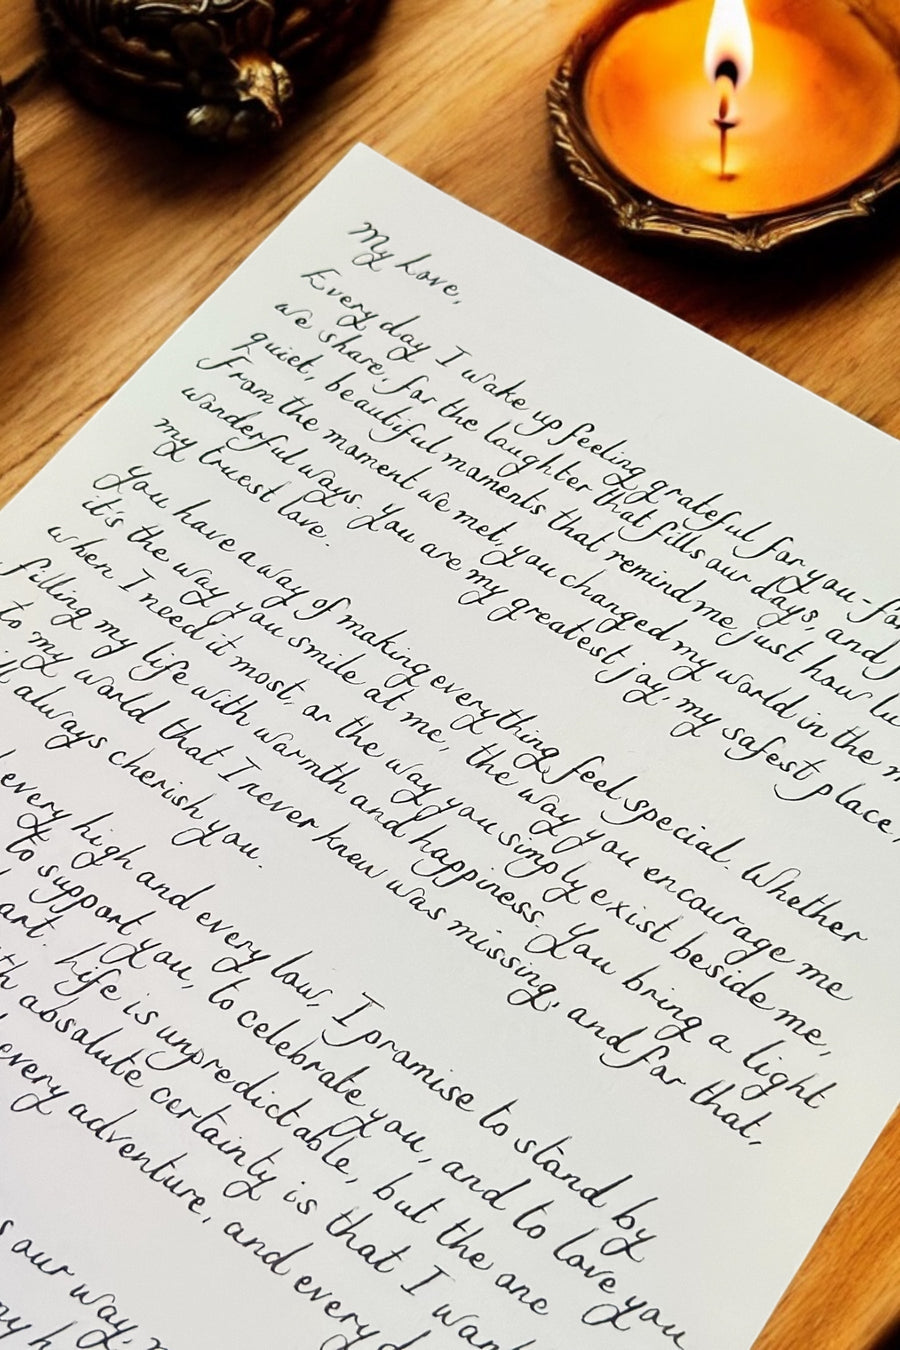 My Love,
Every day I wake up feeling grateful for you-for
we share, for the laughter that fills our days, and f
quiet, beautiful moments that remind me just how lu
From the moment we met, you changed my world in the m
wonderful ways. You are my greatest joy, my safest place,
my truest love.
You have a way of making everything feel special. Whether
it's the way you smile at me, the way you encourage me
when I need it most, or the way you simply exist beside me,
filling my life with warmth and happiness. You bring a light
to my world that I never knew was missing, and for that,
always cherish you.
every high and every low, I promise to stand by
to support you, to celebrate you, and to love you
art. Life is unpredictable, but the one
th absolute certainty is that I want
every adventure, and every d
s our way,
my h